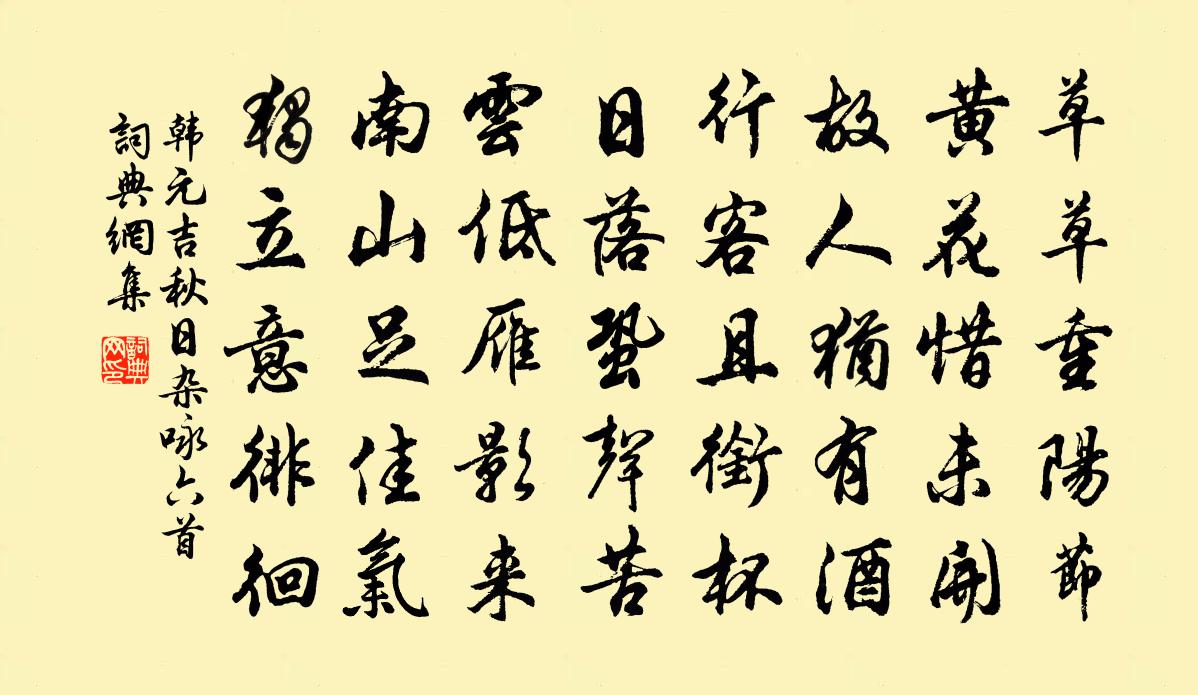 草草重陽節
黃花惜未開
故人猶有酒
行客且銜杯
日落蛩聲苦
雲低雁影来
南山足佳氣
獨立意徘徊
韩元吉秋日杂咏六首
詞典網集
詞典網印